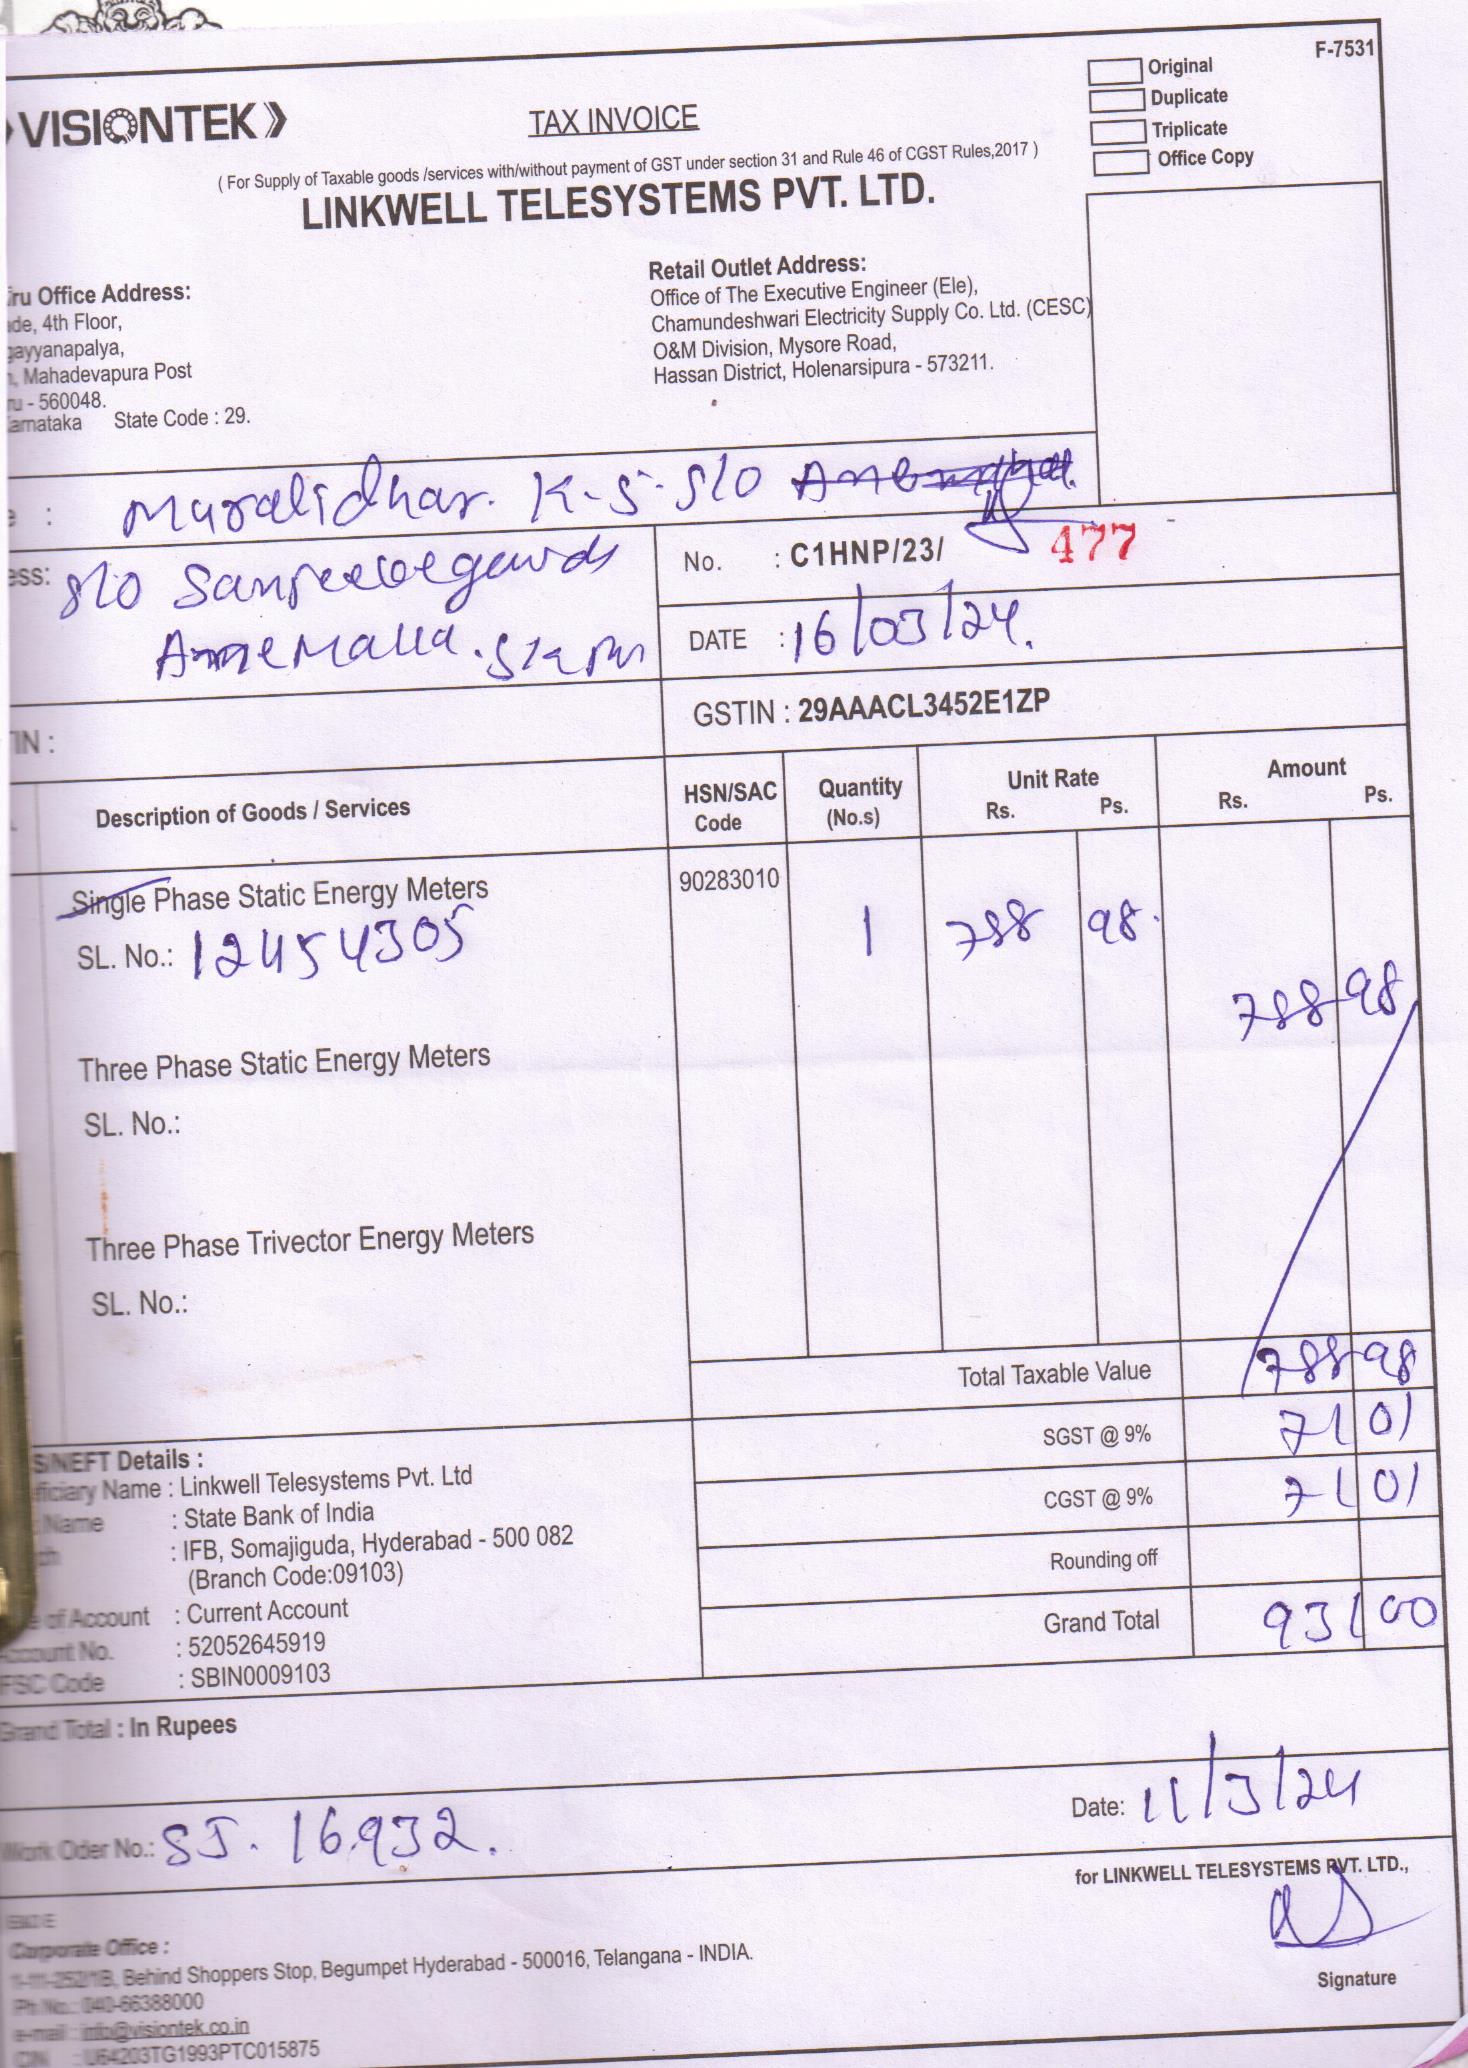 F-7531
Original
Duplicate
Triplicate
Office Copy
VISIONTEK
TAX INVOICE
( For Supply of Taxable goods /services with/without payment of GST under section 31 and Rule 46 of CGST Rules,2017 )
LINKWELL TELESYSTEMS PVT. LTD.
Office Address:
4th Floor,
Mahadevapura Post
- 560048.
State Code : 29.
Retail Outlet Address:
Office of The Executive Engineer (Ele),
Chamundeshwari Electricity Supply Co. Ltd. (CESC)
O&M Division, Mysore Road,
Hassan District, Holenarsipura - 573211.
: Muralidhar. K-S- S/o
S/o Sanjeevegowda
No. : C1HNP/23/ 477
DATE : 16/03/24.
GSTIN : 29AAACL3452E1ZP
Description of Goods / Services
HSN/SAC Code
Quantity (No.s)
Unit Rate Rs. Ps.
Amount Rs. Ps.
Single Phase Static Energy Meters 90283010
SL. No.: 12454305 1 788 98. 788 98
Three Phase Static Energy Meters
SL. No.:
Three Phase Trivector Energy Meters
SL. No.:
Total Taxable Value 788 98
SGST @ 9% 71 01
CGST @ 9% 71 01
Rounding off
Grand Total 931 00
/NEFT Details :
Name : Linkwell Telesystems Pvt. Ltd
Name : State Bank of India
: IFB, Somajiguda, Hyderabad - 500 082
(Branch Code:09103)
of Account : Current Account
Account No. : 52052645919
Code : SBIN0009103
Grand Total : In Rupees
Work Oder No.: SJ. 16932.
Date: 11/3/24
for LINKWELL TELESYSTEMS PVT. LTD.,
Signature
Corporate Office :
Behind Shoppers Stop, Begumpet Hyderabad - 500016, Telangana - INDIA.
Ph No.: 040-66388000
e-mail : info@visiontek.co.in
CIN : U64203TG1993PTC015875